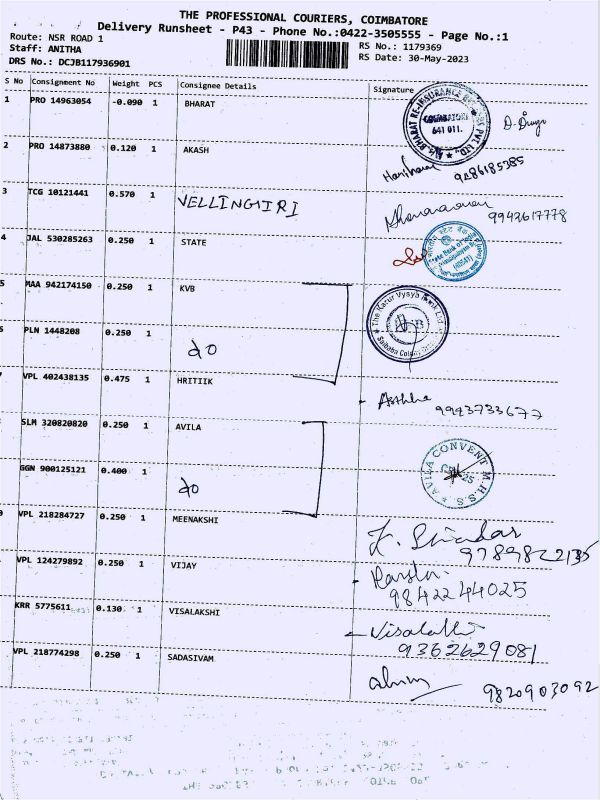 THE PROFESSIONAL COURIERS, COIMBATORE
Delivery Runsheet - P43 - Phone No.:0422-3505555 - Page No.:1
Route: NSR ROAD 1
Staff: ANITHA
DRS No.: DCJB117936901
RS No.: 1179369
RS Date: 30-May-2023
S No Consignment No Weight PCS Consignee Details Signature
1 PRO 14963054 -0.090 1 BHARAT
COIMBATORE
641 011.
2 PRO 14873880 0.120 1 AKASH
9486185385
3 TCG 10121441 0.570 1 VELLINGIRI
9942617778
4 JAL 530285263 0.250 1 STATE
5 MAA 942174150 0.250 1 KVB
The Karur Vysya Bank Ltd
Saibaba Colony
6 PLN 1448208 0.250 1 do
VPL 402438135 0.475 1 HRITIIK
9943733677
SLM 320820820 0.250 1 AVILA
AVILA CONVENT M.H.S.S.
GGN 900125121 0.400 1 do
VPL 218284727 0.250 1 MEENAKSHI
9789822135
VPL 124279892 0.250 1 VIJAY
9842244025
KRR 5775611 0.130 1 VISALAKSHI
Visalakshi
9362629081
VPL 218774298 0.250 1 SADASIVAM
9820903092